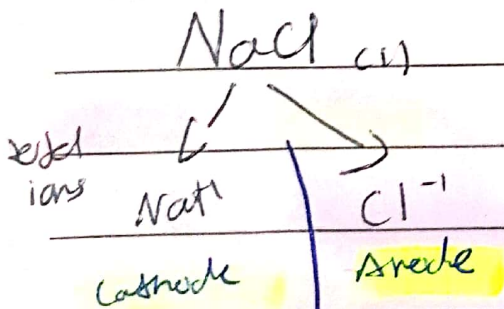 NaCl (l)
ions
Na+1 Cl-1
Cathode Anode